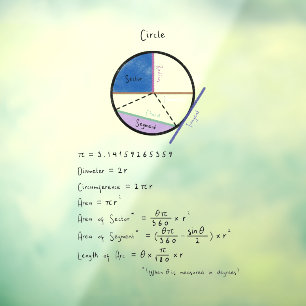 Circle
Sector
Radius
Chord
Segment
Tangent
π = 3.14159265359
Diameter = 2r
Circumference = 2πr
Area = πr²
Area of Sector* = θπ/360 × r²
Area of Segment* = (θπ/360 - sinθ/2) × r²
Length of Arc = θ × π/180 × r
*(When θ is measured in degrees)